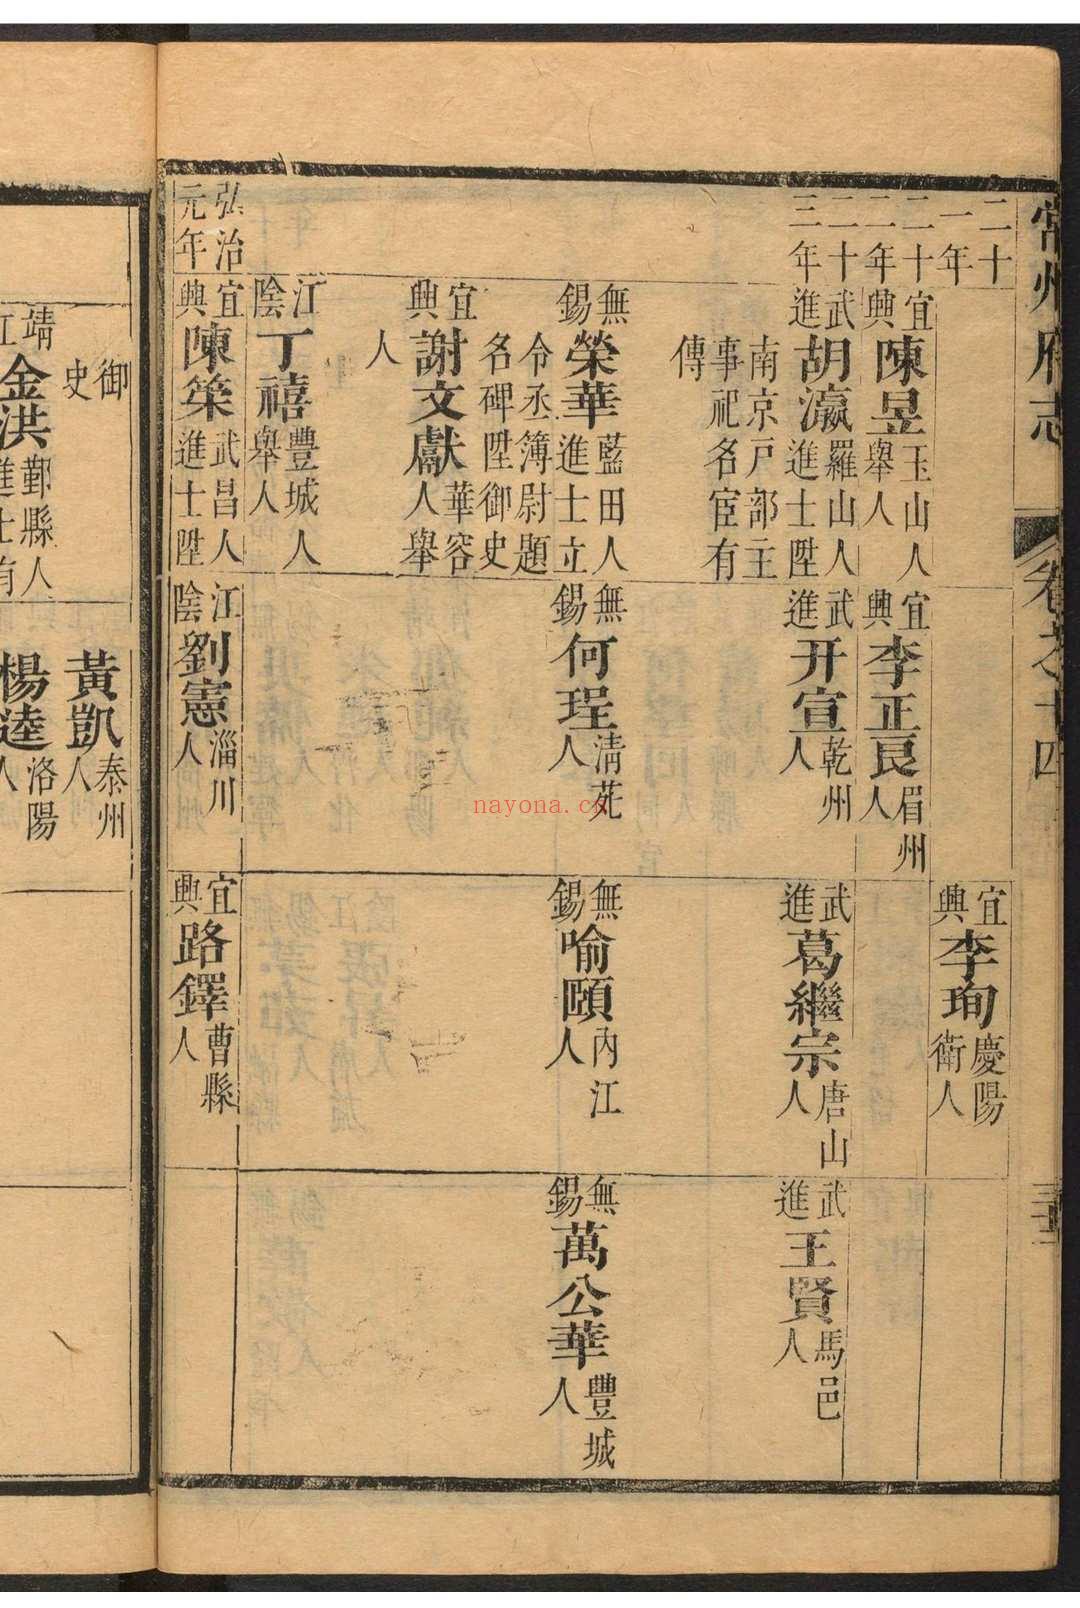 常州府志
卷之十四
二十一年
宜興李珣慶陽衛人
二十二年
宜興陳昱玉山人舉人
宜興李正良眉州人
二十三年
武進胡瀛羅山人進士陞南京戸部主事祀名宦有傳
武進开宣乾州人
武進葛繼宗唐山人
武進王賢馬邑人
無錫榮華藍田人進士立令丞簿尉題名碑陞御史
無錫何珵清苑人
無錫喻頤內江人
無錫萬公華豐城人
宜興謝文獻華容人舉人
江陰丁禧豐城人舉人
弘治元年
宜興陳築武昌人進士陞
江陰劉憲淄川人
宜興路鐸曹縣人
御史
黃凱泰州人
靖江金洪鄞縣人進士有
楊逵洛陽人
nayona.cn